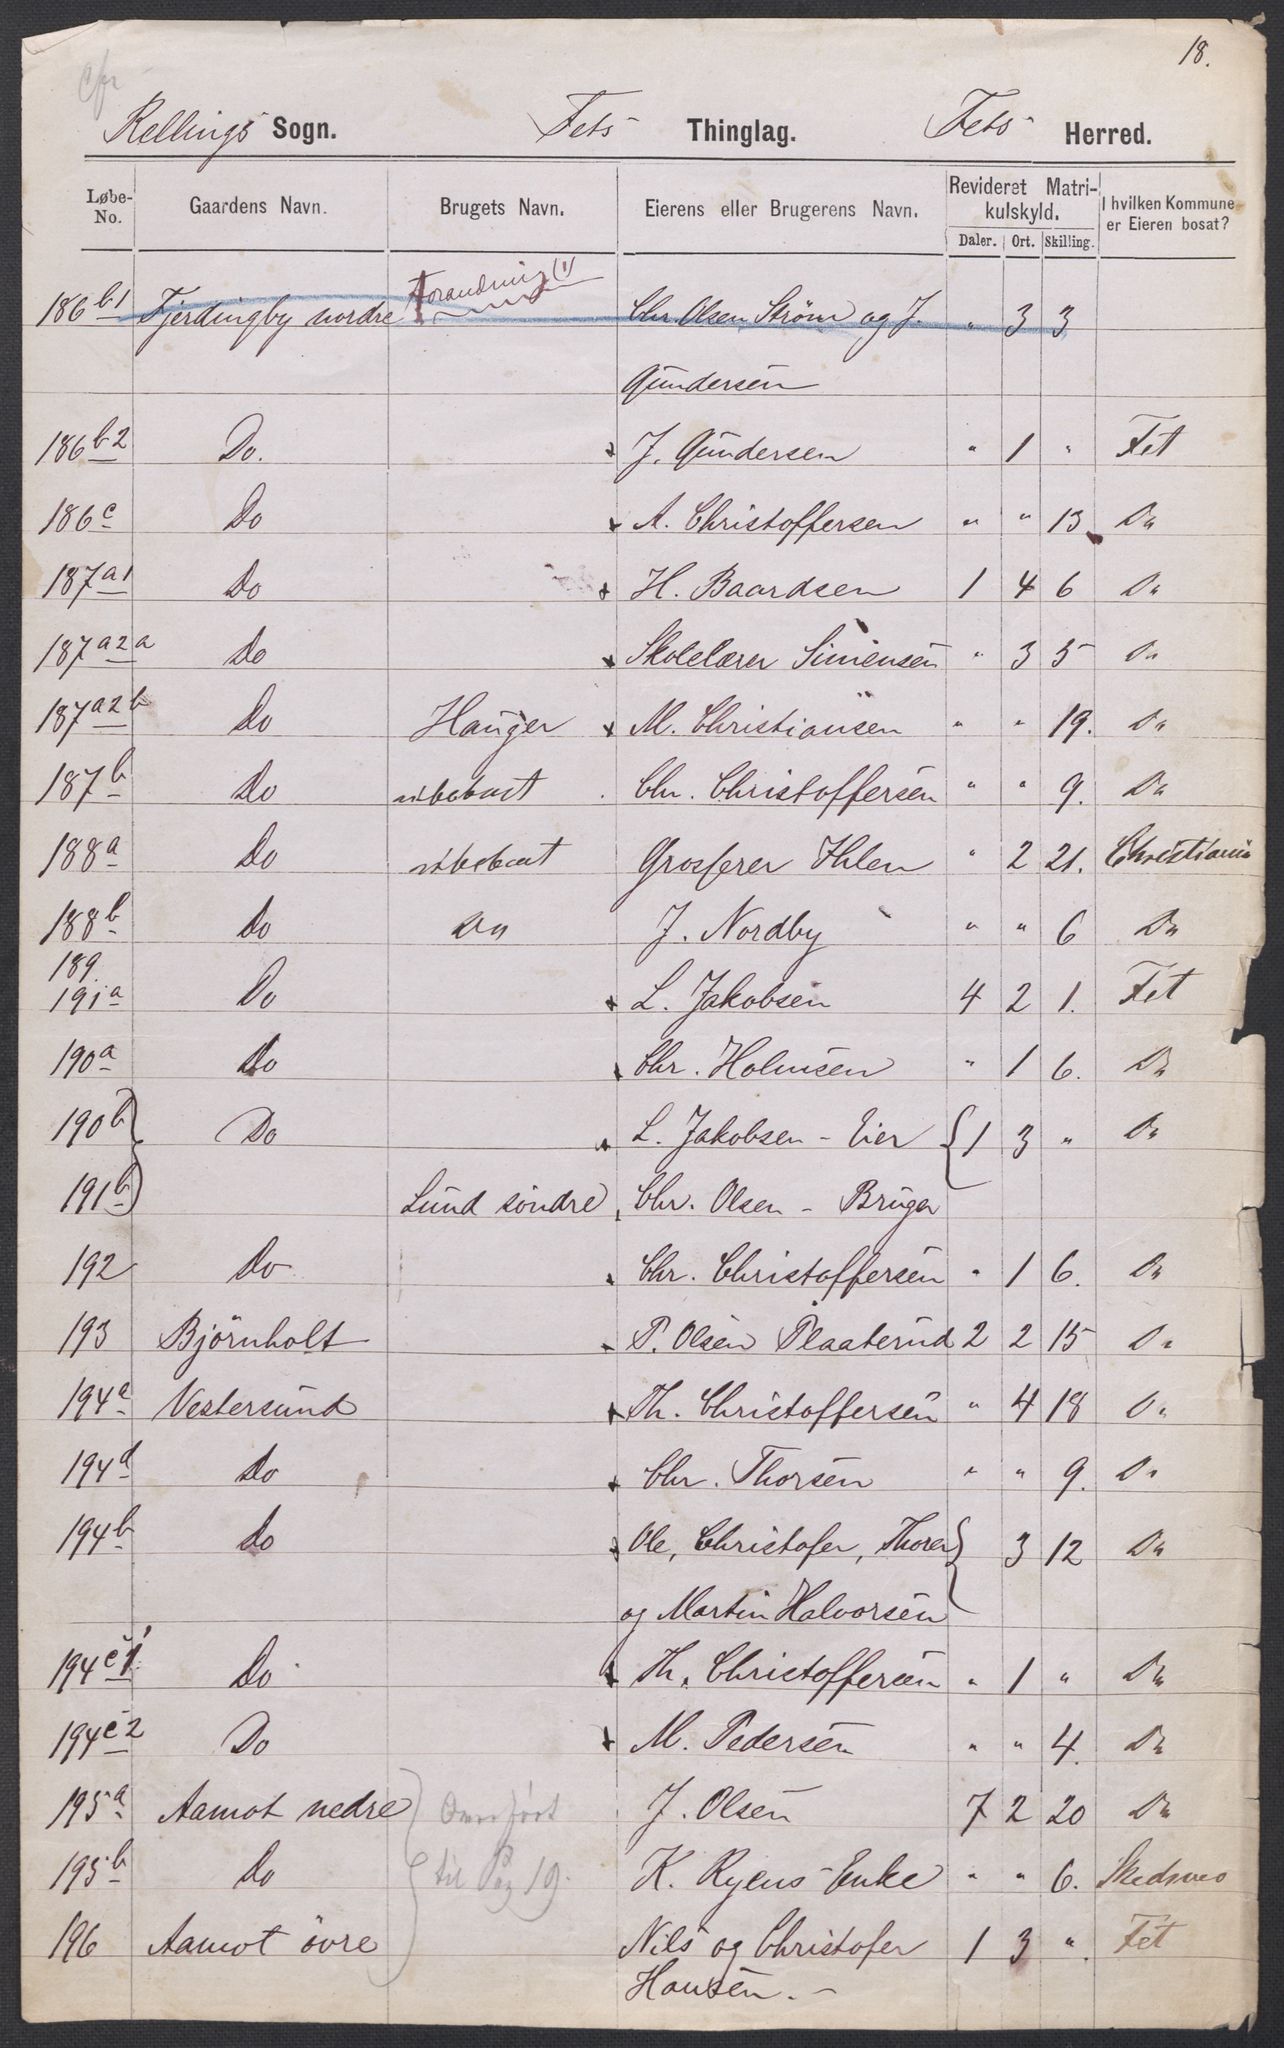 18.
cfr
Rellings Sogn. Fets Thinglag. Fets Herred.
Løbe-No. Gaardens Navn. Brugets Navn. Eierens eller Brugerens Navn. Revideret Matrikulskyld. Daler. Ort. Skilling. I hvilken Kommune er Eieren bosat?
Forandring (1)
186 b1 Fjerdingby nordre Chr. Olsen Strøm og J. " 3 3
Gundersen
186 b2 Do. J. Gundersen " 1 " Fet
186 c Do A. Christoffersen " " 13 Do
187 a1 Do H. Baardsen 1 4 6 Do
187 a2a Do Skolelærer Simensen " 3 5 Do
187 a2b Do Hauger M. Christiansen " " 19. Do
187 b Do ubebout Chr. Christoffersen " " 9. Do
188 a Do ubebout Grosserer Ihlen " 2 21. Christiania
188 b Do Do J. Nordby " " 6 Do
189
191 a Do L. Jakobsen 4 2 1. Fet
190 a Do Chr. Holmsen " 1 6. Do
190 b Do L. Jakobsen - Eier 1 3 " Do
191 b Lund söndre Chr. Olsen - Bruger
192 Do Chr. Christoffersen " 1 6. Do
193 Björnholt P. Olsen Plaaterud 2 2 15 Do
194 a Vestersund Th. Christoffersen " 4 18 Do
194 d Do Chr. Thorsen " " 9. Do
194 b Do Ole, Christofer, Thorer 3 12 Do
og Martin Halvorsen
194 c1 Do Th. Christoffersen " 1 " Do
194 c2 Do M. Pedersen " " 4. Do
195 a Aamot nedre Overført J. Olsen 7 2 20 Do
195 b Do til Pag 19. K. Ryens Enke " " 6. Skedsmo
196 Aamot övre Nils og Christofer 1 3 " Fet
Hansen. -